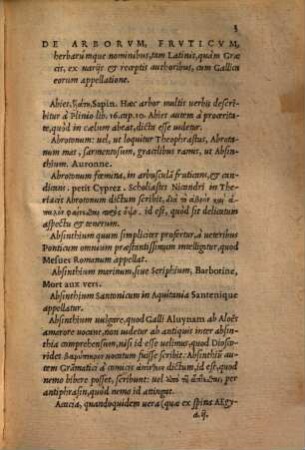 3
DE ARBORVM, FRVTICVM,
herbarúmque nominibus, tam Latinis, quàm Græ
cis, ex varijs & receptis authoribus, cum Gallica
eorum appellatione.
Abies, Sapin. Hæc arbor multis verbis descri
bitur à Plinio lib. 16. cap. 10. Abies autem à proœrita-
te, quòd in cælum abeat, dicta esse videtur.
Abrotonum: vel, ut loquitur Theophrastus, Abrota
num mas, sarmentosum, gracilibus ramis, ut Absin
thium. Auronne.
Abrotonum fœmina, in arbusculā fruticans, & can
dicans, petit Cyprez. Scholiastes Nicandri in The
riacis Abrotonum dictum scribit,
id est, quòd sit delicatum
aspectu & tenerum.
Absinthium quum simpliciter profertur, à veteribus
Ponticum omnium præstantissimum intelligitur, quod
Mesues Romanum appellat.
Absinthium marinum, siue Seriphium, Barbotine,
Mort aux vers.
Absinthium Santonicum in Aquitania Santenique
appellatur.
Absinthium vulgore, quod Galli Aluynam ab Aloës
amarore vocant, non videtur ab antiquis inter absin
thia comprehensum, nisi id esse velimus, quod Diosco
ridet vocatum fuisse scribit. Absinthiū
autem Grāmatici à comicis dictum, id est, quod
nemo bibere posset, scribunt: vel per
antiphrasin, quòd nemo id attingat.
Acacia, quandoquidem vera (quæ ex spina Aegy-
a.ij.